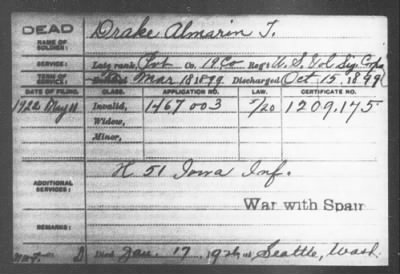 DEAD
NAME OF SOLDIER: Drake Almarin T.
SERVICE: Late rank, Pvt Co. 19 Co Reg't U.S. Vol Sig Corps
TERM OF SERVICE: Enlisted Mar 18 1899, Discharged Oct 15, 1899
DATE OF FILING. CLASS. APPLICATION NO. LAW. CERTIFICATE NO.
1922 May 11 Invalid, 1467003 5/20 1209.175
Widow,
Minor,
ADDITIONAL SERVICES: H. 51 Iowa Inf.
War with Spain
REMARKS:
D Died Jan. 17, 1926 at Seattle, Wash.